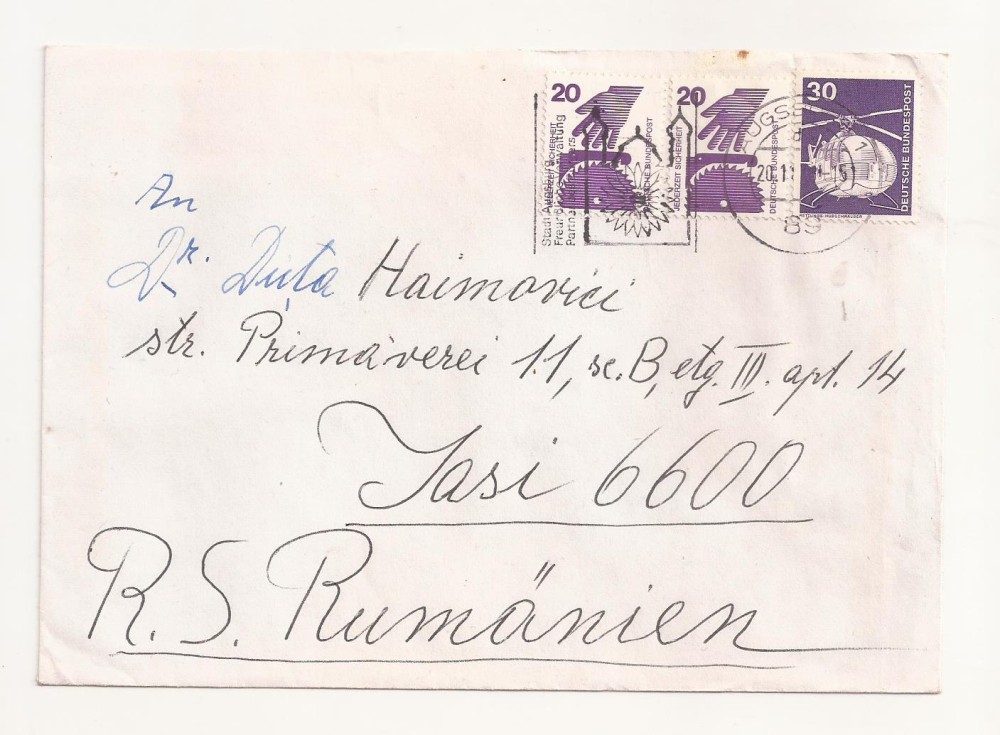 20
JEDERZEIT SICHERHEIT
DEUTSCHE BUNDESPOST
20
JEDERZEIT SICHERHEIT
DEUTSCHE BUNDESPOST
30
DEUTSCHE BUNDESPOST
RETTUNGS-HUBSCHRAUBER
Stadt Augsburg
89
An
Dr. Duța Haimovici
str. Primăverei 11, sc. B, etg. III. apt. 14
Iasi 6600
R. S. Rumänien